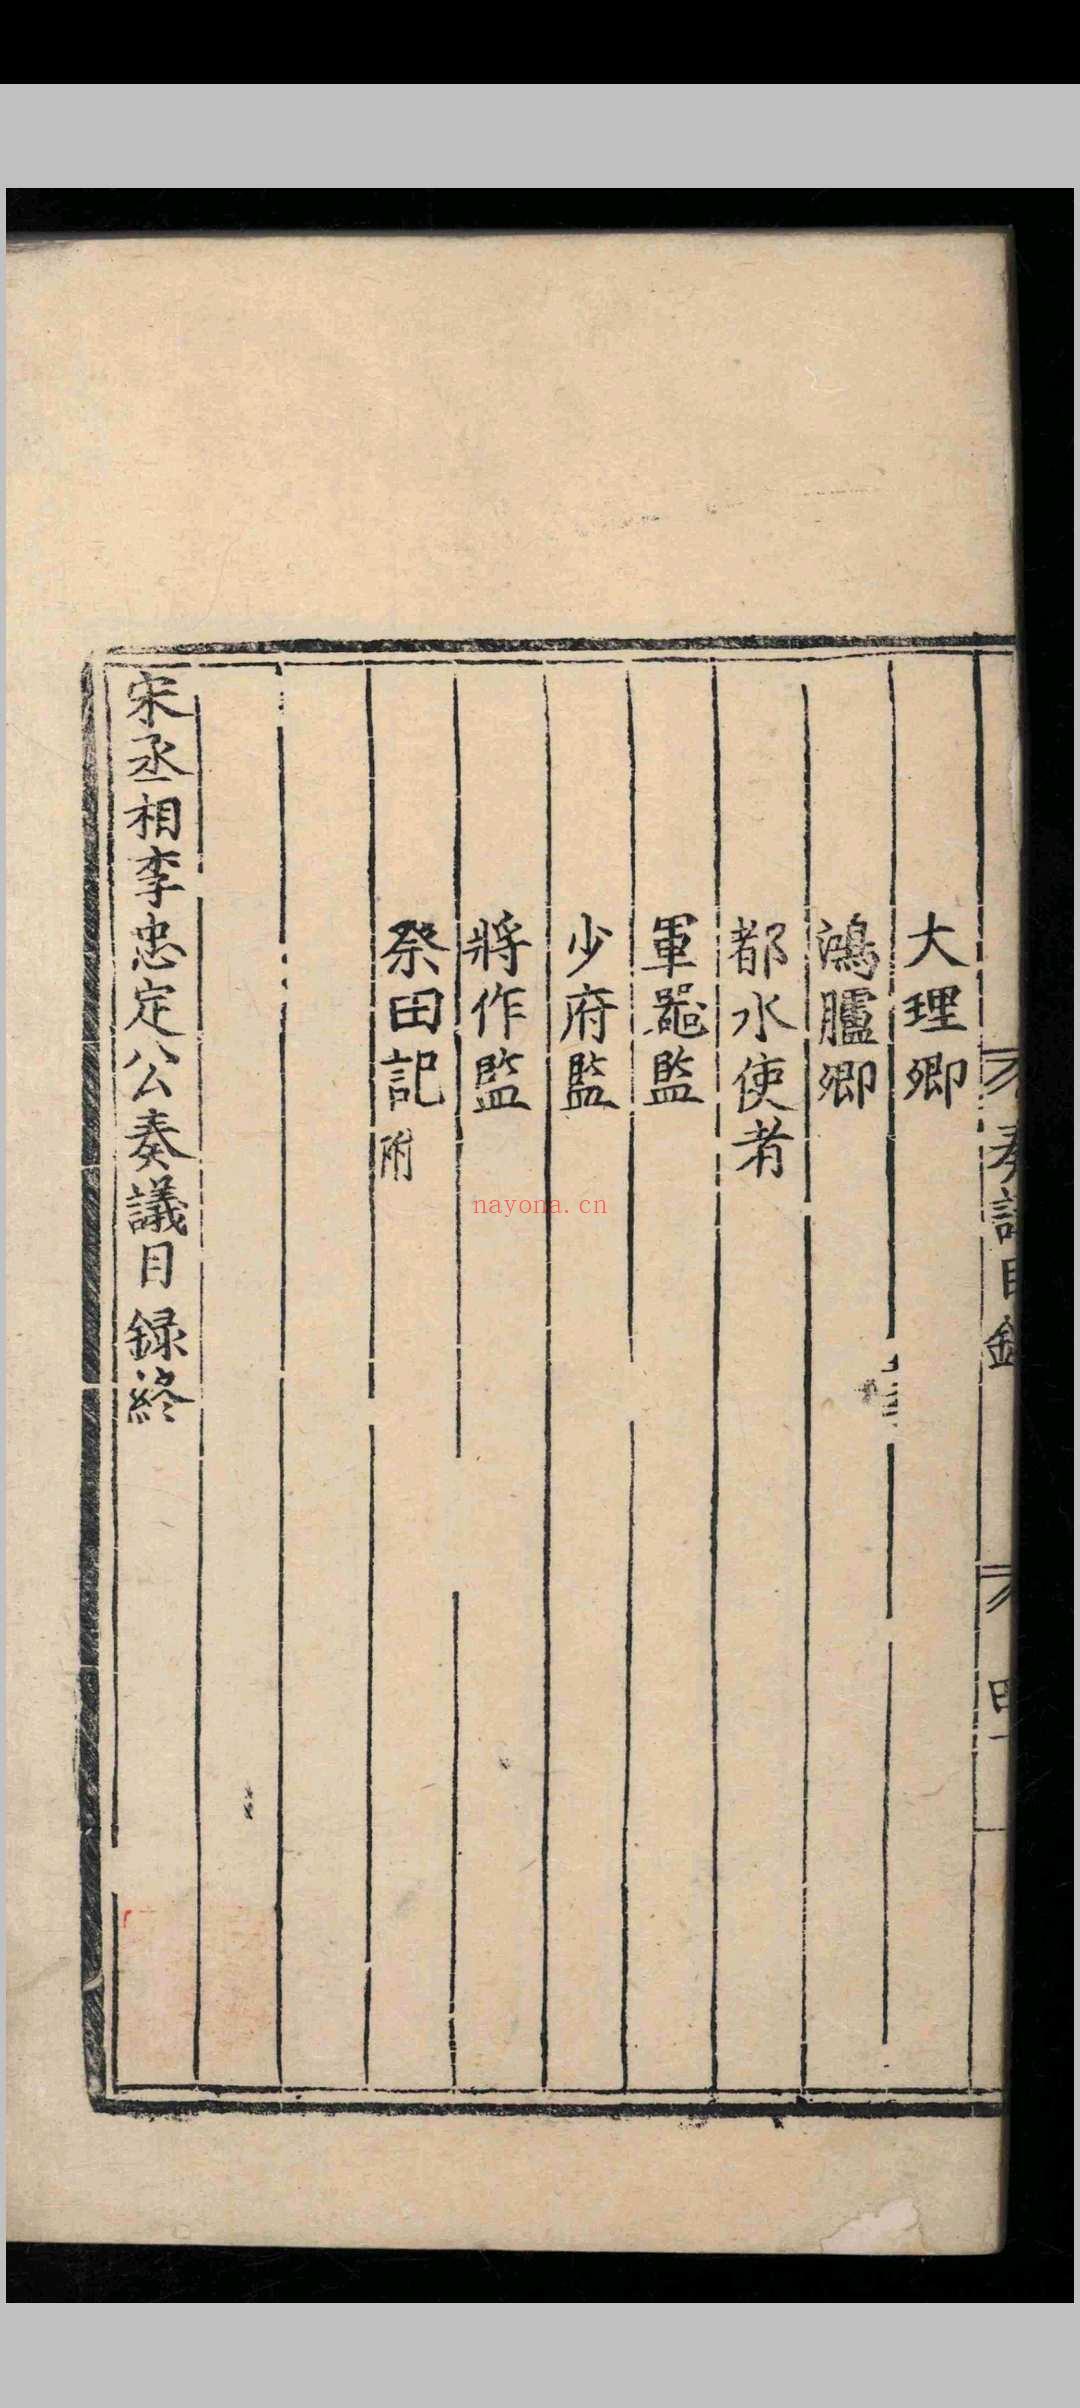 奏議目錄
大理卿
鴻臚卿
都水使者
軍器監
少府監
將作監
祭田記附
宋丞相李忠定公奏議目録終
nayona.cn